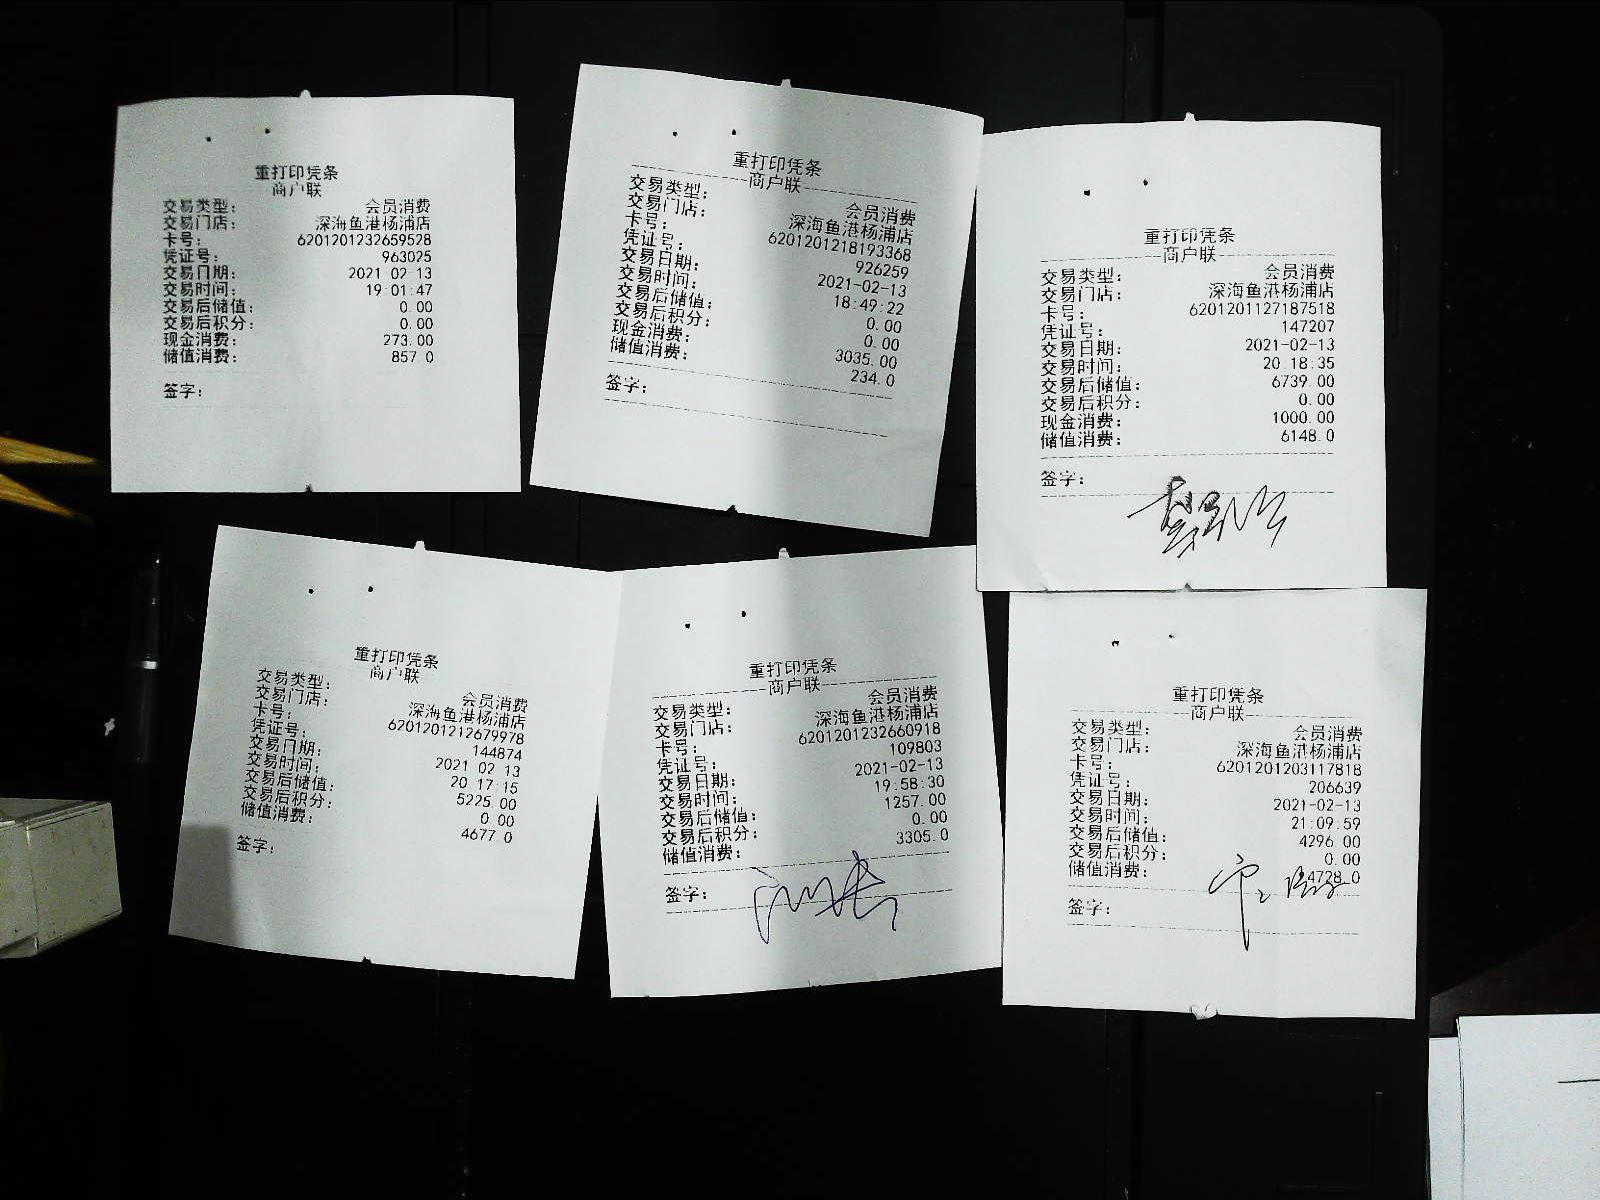 重打印凭条
商户联
交易类型: 会员消费
交易门店: 深海鱼港杨浦店
卡号: 6201201232659528
凭证号: 963025
交易日期: 2021 02 13
交易时间: 19:01:47
交易后储值: 0.00
交易后积分: 0.00
现金消费: 273.00
储值消费: 857 0
签字:
重打印凭条
商户联
交易类型: 会员消费
交易门店: 深海鱼港杨浦店
卡号: 6201201218193368
凭证号: 926259
交易日期: 2021-02-13
交易时间: 18:49:22
交易后储值: 0.00
交易后积分: 0.00
现金消费: 3035.00
储值消费: 234.0
签字:
重打印凭条
商户联
交易类型: 会员消费
交易门店: 深海鱼港杨浦店
卡号: 6201201127187518
凭证号: 147207
交易日期: 2021-02-13
交易时间: 20 18:35
交易后储值: 6739 00
交易后积分: 0.00
现金消费: 1000.00
储值消费: 6148.0
签字:
重打印凭条
商户联
交易类型: 会员消费
交易门店: 深海鱼港杨浦店
卡号: 6201201212679978
凭证号: 144874
交易日期: 2021 02 13
交易时间: 20 17 15
交易后储值: 5225 00
交易后积分: 0 00
储值消费: 4677 0
签字:
重打印凭条
商户联
交易类型: 会员消费
交易门店: 深海鱼港杨浦店
卡号: 6201201232660918
凭证号: 109803
交易日期: 2021-02-13
交易时间: 19:58:30
交易后储值: 1257.00
交易后积分: 0.00
储值消费: 3305.0
签字:
重打印凭条
商户联
交易类型: 会员消费
交易门店: 深海鱼港杨浦店
卡号: 6201201203117818
凭证号: 206639
交易日期: 2021-02-13
交易时间: 21:09:59
交易后储值: 4296 00
交易后积分: 0.00
储值消费: 4728 0
签字: